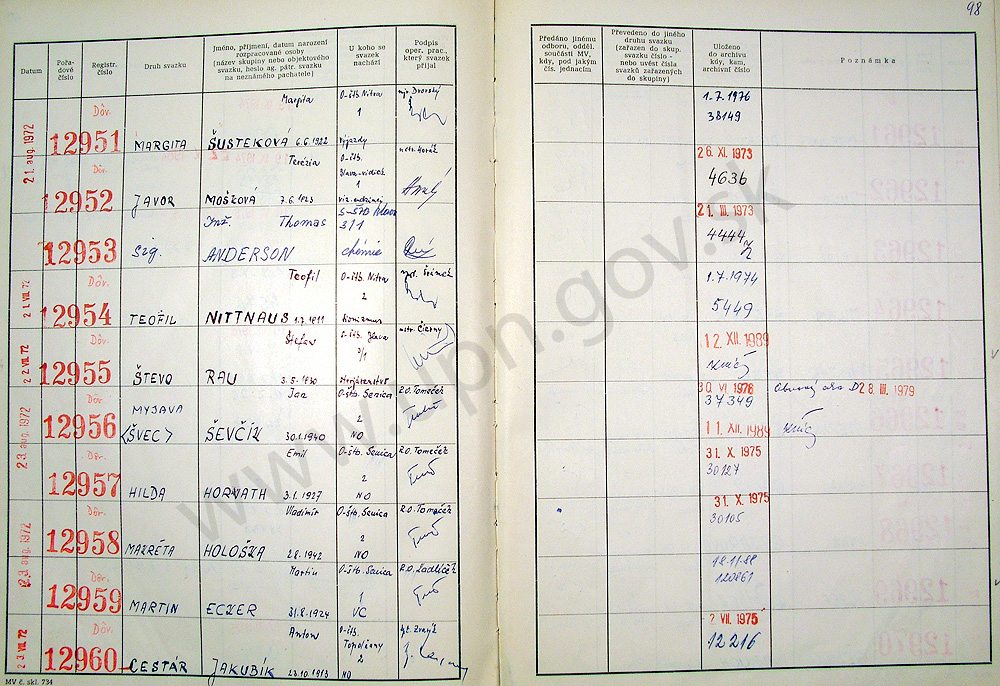 98
Datum
Pořa-
dové
číslo
Registr.
číslo
Druh svazku
Jméno, příjmení, datum narození
rozpracované osoby
(název skupiny nebo objektového
svazku, heslo ag. pátr. svazku
na neznámého pachatele)
U koho se
svazek
nachází
Podpis
oper. prac.,
který svazek
přijal
Předáno jinému
odboru, odděl.
součásti MV,
kdy, pod jakým
čís. jednacím
Převedeno do jiného
druhu svazku
(zařazen do skup.
svazku číslo -
nebo uvést čísla
svazků zařazených
do skupiny)
Uloženo
do archivu
kdy, kam,
archivní číslo
Poznámka
21. aug. 1972
Dôv.
12951
MARGITA
Margita
ŠUSTEKOVÁ 6.6.1922
O-štb Nitra
1
výjazdy
Dvorský
1.7.1976
38149
Dôv.
12952
JAVOR
Terézia
MOŠKOVÁ 7.6.1923
O-štb.
1
Horák
26. XI. 1973
4636
12953
Sig.
Inž. Thomas
ANDERSON
3/1
chémie
21. III. 1973
4444
2 1. VIII. 72
Dôv.
12954
TEOFIL
Teofil
NITTNAUS 1.7.1911
O-štb. Nitra
2
Šrámek
1.7.1974
5449
2 2. VIII. 72
Dôv.
12955
ŠTEVO
Štefan
RAU 3.5.1930
Čierny
12. XII. 1989
23. aug. 1972
Dôv
12956
MYJAVA
<ŠVEC>
Jan
ŠEVČÍK 30.1.1940
O-štb. Senica
2
NO
R.O. Tomeček
30. VI 1976
37349
28. III. 1979
11. XII. 1989
Dôv.
12957
HILDA
Emil
HORVATH 3.1.1927
O-štb. Senica
2
NO
R.O. Tomeček
31. X. 1975
30127
23. aug. 1972
Dôv.
12958
MAKRÉTA
Vladimír
HOLOŠKA 2.8.1942
O-štb. Senica
2
NO
R.O. Tomeček
31. X. 1975
30105
Dôv.
12959
MARTIN
Martin
ECKER 31.8.1924
O-štb. Senica
1
VC
18.11.88
120861
2 3. VIII. 72
Dôv.
12960
CESTÁR
Anton
JAKUBÍK 23.10.1913
O-štb.
Topoľčany
2
NO
VII. 1975
12216
MV č. skl. 734
www.upn.gov.sk